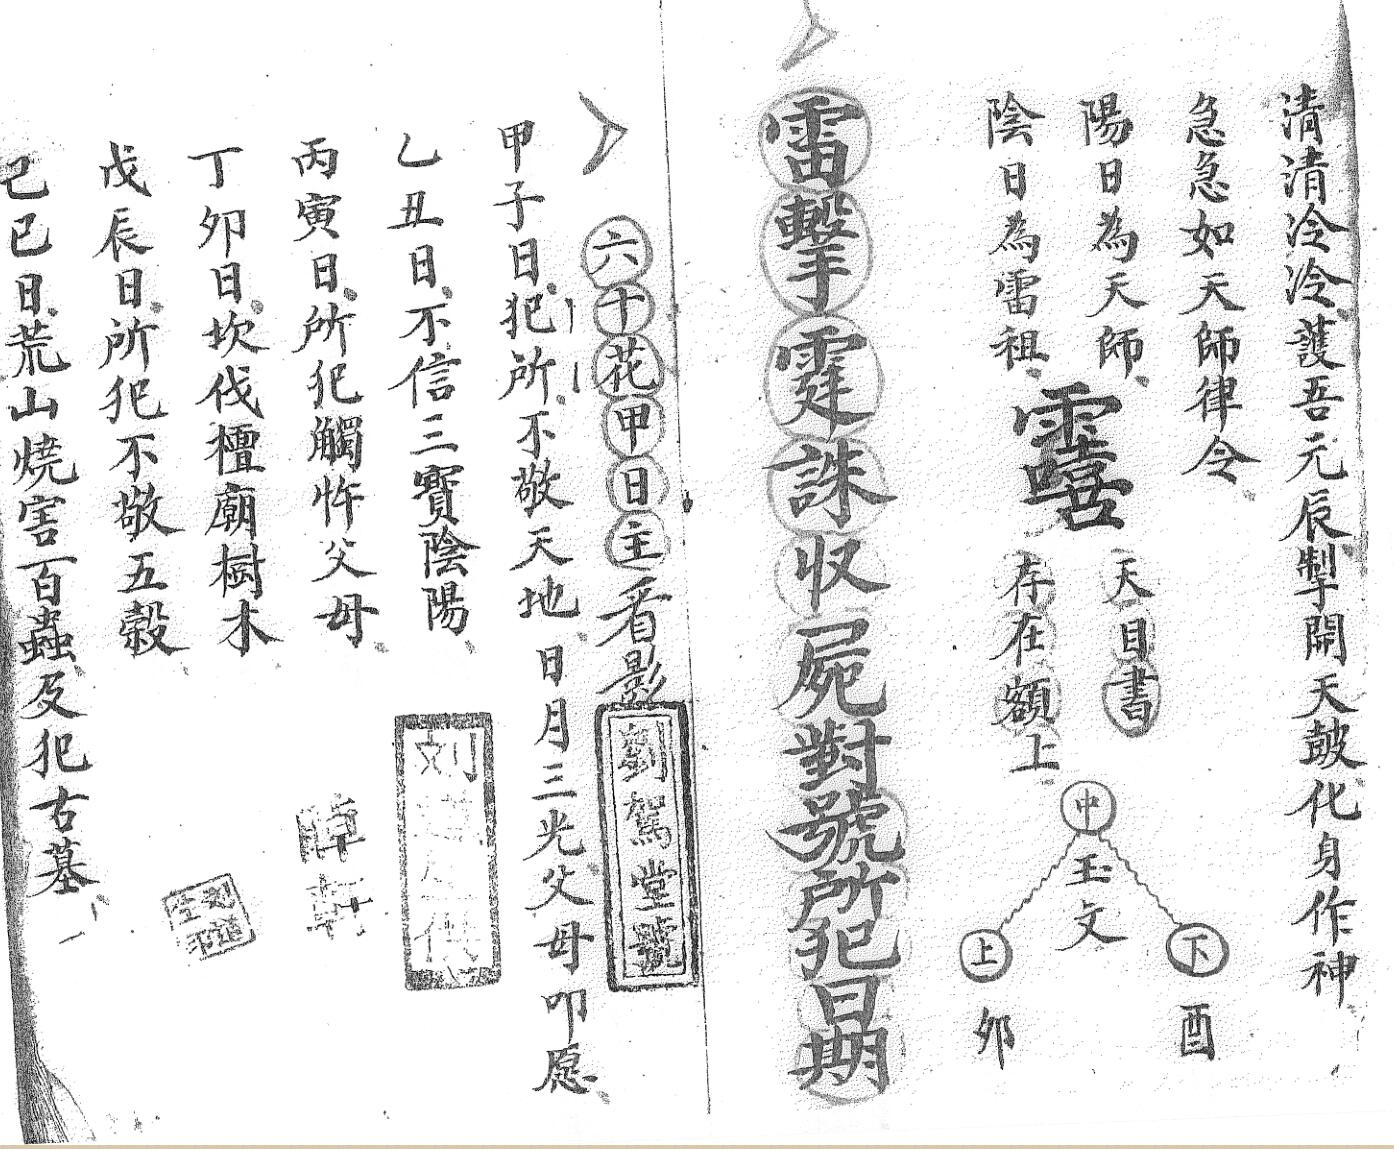 清清冷冷護吾元辰掣開天鼓化身作神
急急如天師律令
陽日為天師
陰日為雷祖
天目書
存在額上
中
玉文
下
酉
上
夘
雷擊霆誅収屍對號所犯日期
六十花甲日主看影
劉駕堂號
甲子日犯所不敬天地日月三光父母叩愿
乙丑日不信三寶陰陽
丙寅日所犯觸忤父母
丁夘日坎伐檀廟樹木
戊辰日所犯不敬五穀
己巳日荒山燒害百蟲及犯古墓